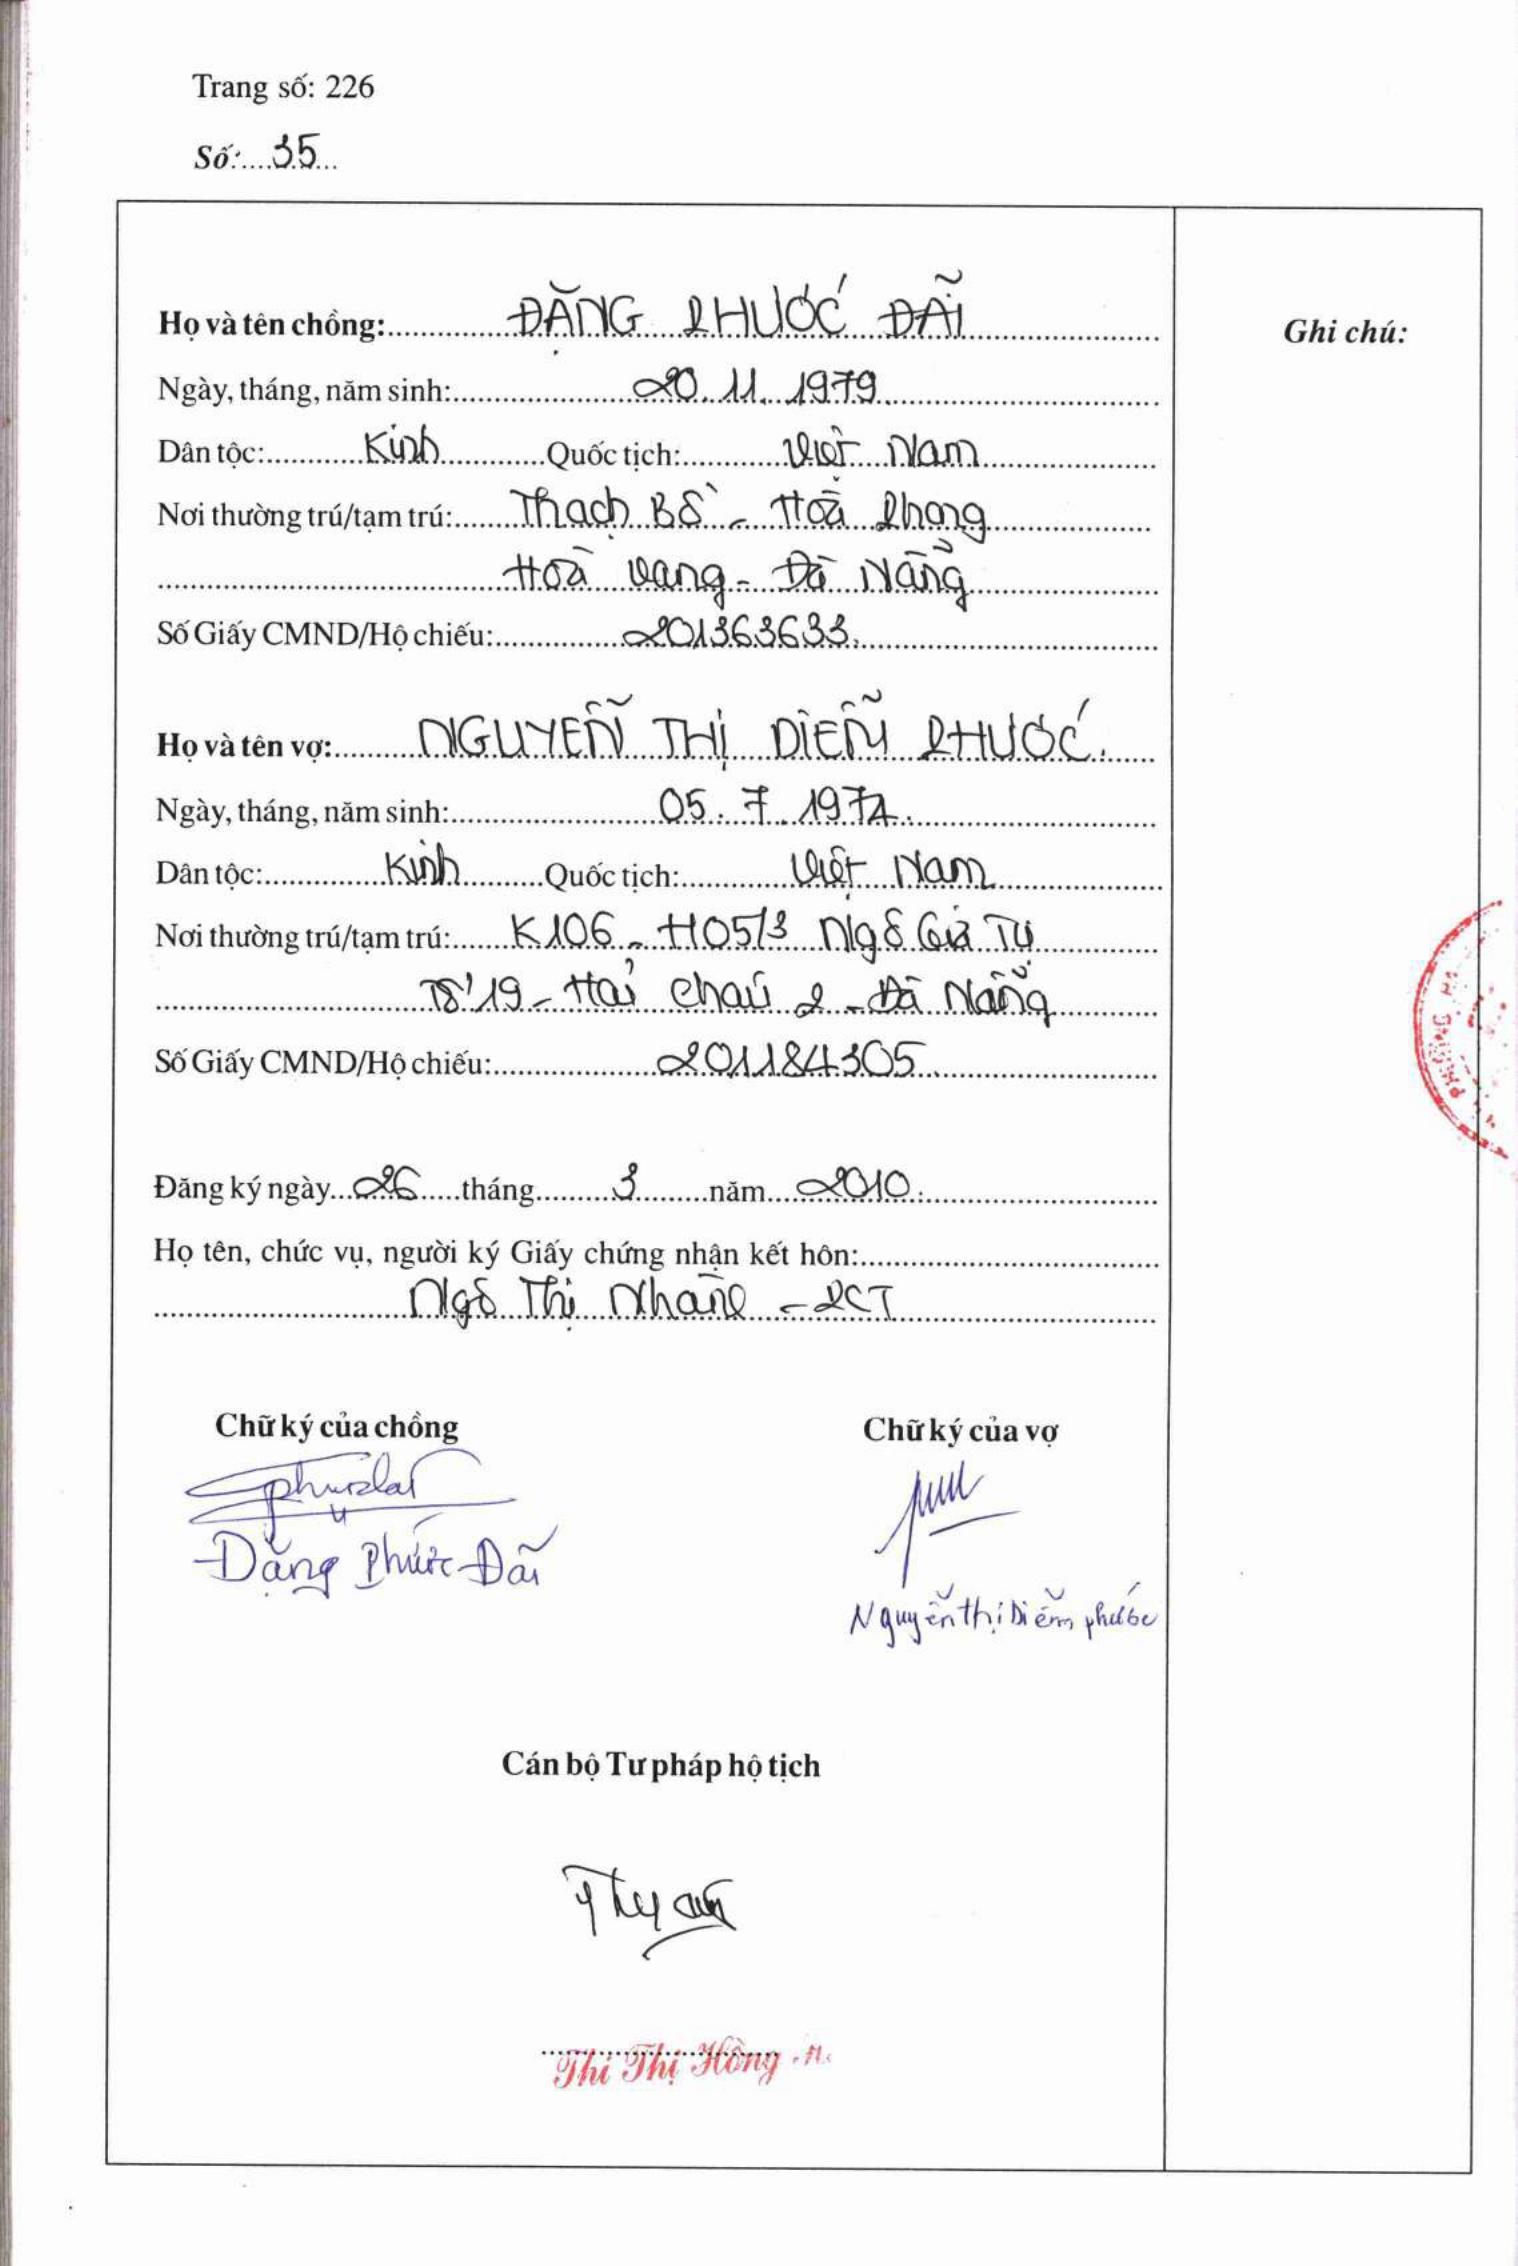 Trang số: 226
Số: 35
Họ và tên chồng: ĐẶNG PHƯỚC ĐÃI
Ghi chú:
Ngày, tháng, năm sinh: 20.11.1979
Dân tộc: Kinh Quốc tịch: Việt Nam
Nơi thường trú/tạm trú: Thạch Bồ - Hoà Phong
Hoà Vang - Đà Nẵng
Số Giấy CMND/Hộ chiếu: 201363633.
Họ và tên vợ: NGUYỄN THỊ DIỄM PHƯỚC.
Ngày, tháng, năm sinh: 05.7.1974.
Dân tộc: Kinh Quốc tịch: Việt Nam
Nơi thường trú/tạm trú: K106 - H05/3 Ngô Gia Tự
Tổ 19 - Hải Châu 2 - Đà Nẵng
Số Giấy CMND/Hộ chiếu: 201184305.
Đăng ký ngày 26 tháng 3 năm 2010.
Họ tên, chức vụ, người ký Giấy chứng nhận kết hôn:
Ngô Thị - PCT
Chữ ký của chồng
Chữ ký của vợ
Đặng Phước Đãi
Nguyễn thị Diễm phước
Cán bộ Tư pháp hộ tịch
Thi Thị Hồng
PHƯỜNG